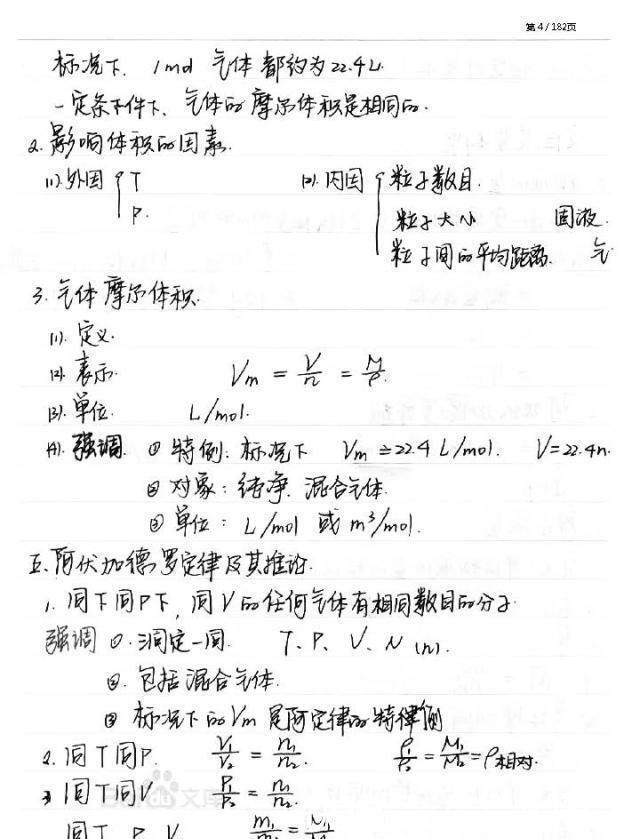 第 4 / 182页
标况下. 1mol 气体都约为22.4L.
一定条下件下、气体的摩尔体积是相同的.
2. 影响体积的因素.
(1).外因 { T (2).内因 { 粒子数目.
P. 粒子大小 固液.
粒子间的平均距离. 气
3. 气体摩尔体积.
(1). 定义.
(2). 表示. Vm = V/n = M/ρ.
(3). 单位. L/mol.
(4). 强调. ① 特例: 标况下 Vm ≐22.4 L/mol. V=22.4n.
② 对象: 纯净. 混合气体.
③ 单位: L/mol 或 m³/mol.
五. 阿伏加德罗定律及其推论.
1. 同T同P下, 同V的任何气体有相同数目的分子.
强调 ①. 三同定一同. T、P、V、N (n).
②. 包括混合气体.
③ 标况下的Vm 是阿定律的特律例
2. 同T同P. V₁/V₂ = n₁/n₂. ρ₁/ρ₂ = M₁/M₂ = ρ相对.
3 同T同V P₁/P₂ = n₁/n₂.
同T. P. V. m₁/m₂ = M₁/M₂
文库